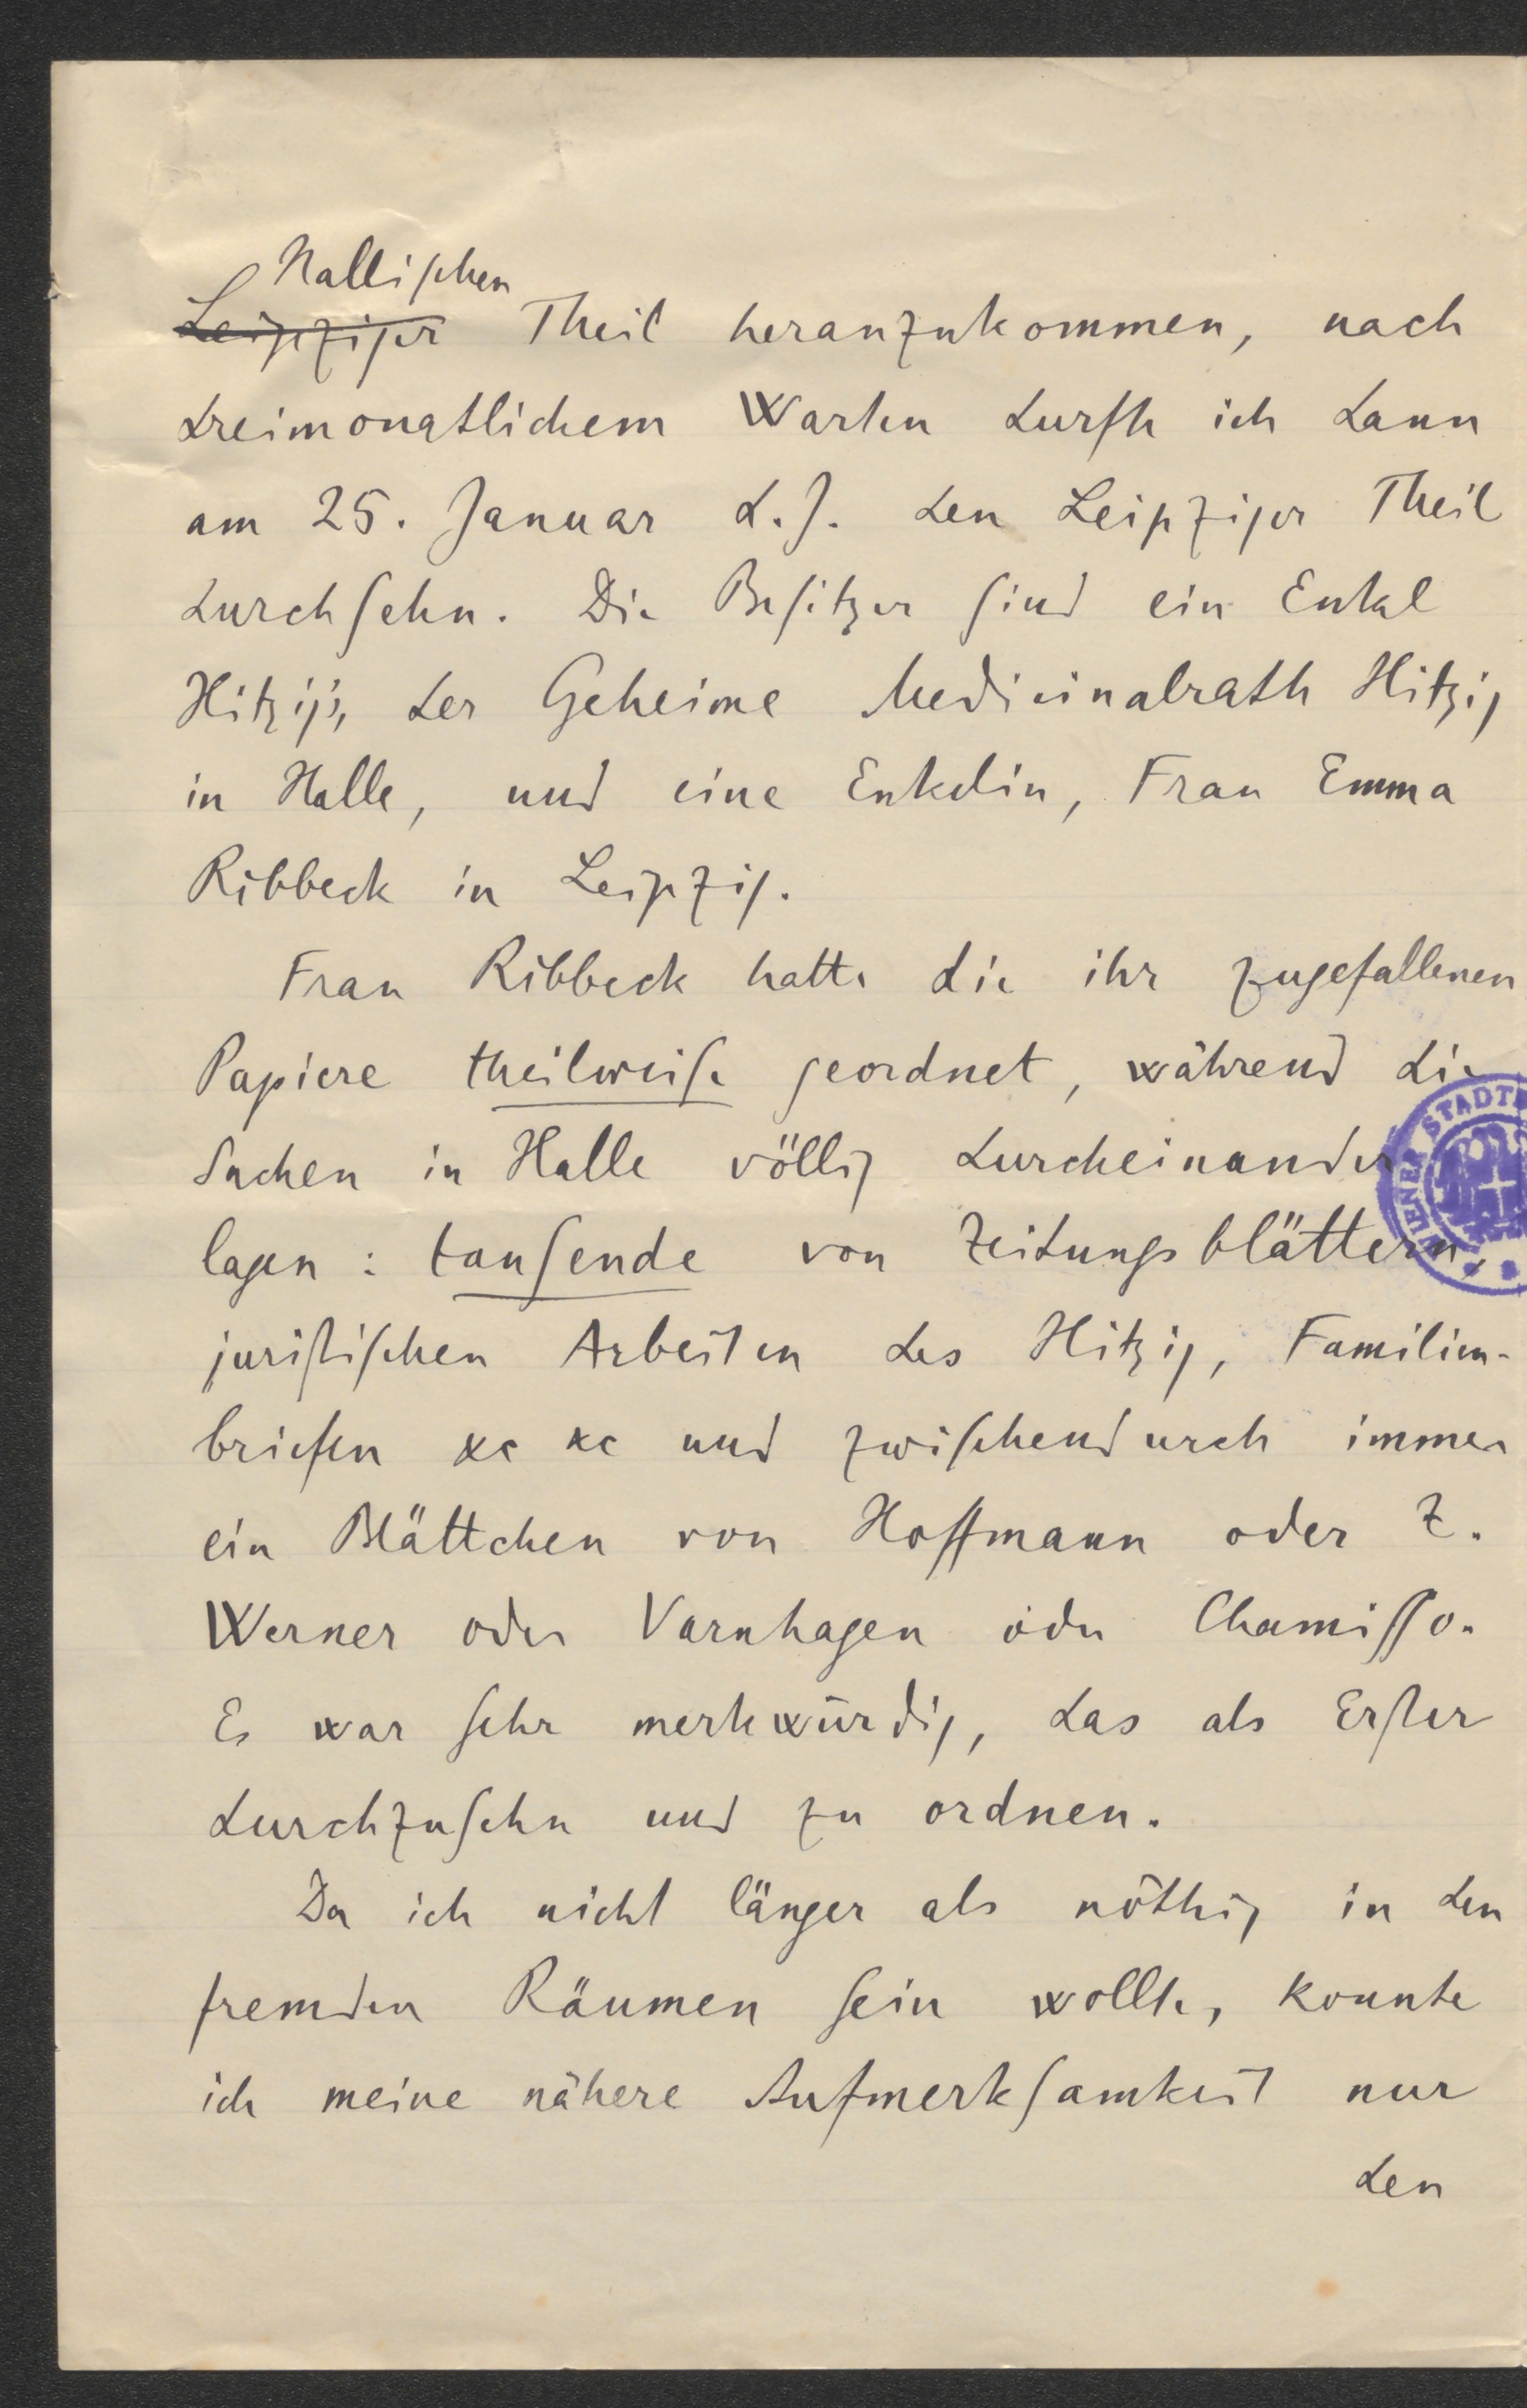 Hallischen
Leipziger Theil heranzukommen, nach
dreimonatlichem Warten durfte ich dann
am 25. Januar d. J. den Leipziger Theil
durchsehn. Die Besitzer sind ein Enkel
Hitzig's, der Geheime Medicinalrath Hitzig
in Halle, und eine Enkelin, Frau Emma
Ribbeck in Leipzig.
Frau Ribbeck hatte die ihr zugefallenen
Papiere theilweise geordnet, während die
Sachen in Halle völlig durcheinander
lagen: tausende von Zeitungsblättern,
juristischen Arbeiten des Hitzig, Familien-
briefen &c &c und zwischendurch immer
ein Blättchen von Hoffmann oder Z.
Werner oder Varnhagen oder Chamisso.
Es war sehr merkwürdig, das als Erster
durchzusehn und zu ordnen.
Da ich nicht länger als nöthig in den
fremden Räumen sein wollte, konnte
ich meine nähere Aufmerksamkeit nur
den